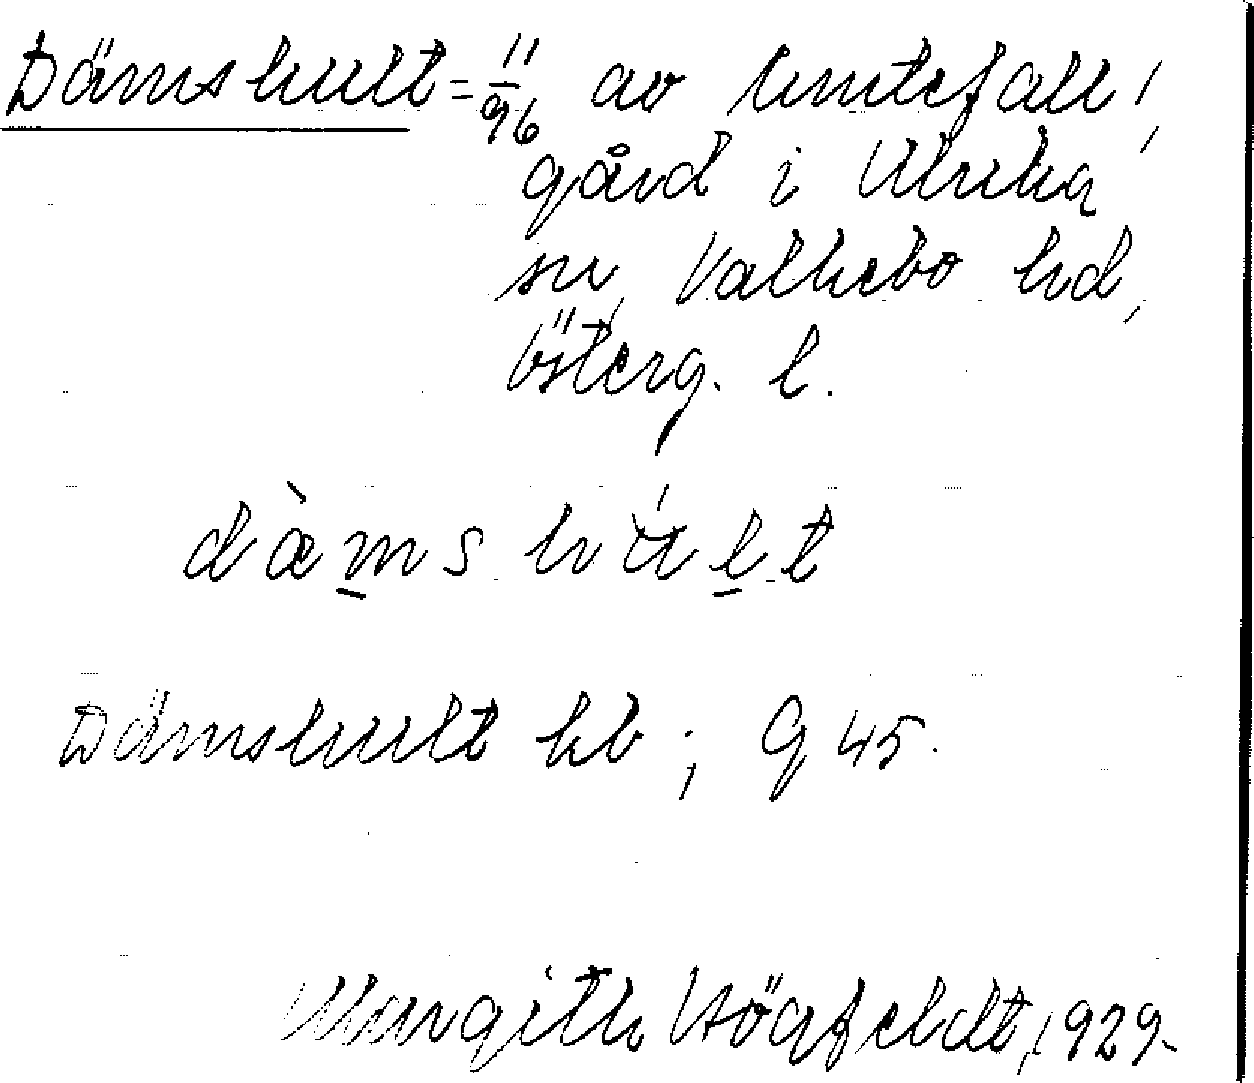 Dämshult = 11/96 av Untefall,
gård i Ulrika
sn, Valkebo hd,
Österg. l.
dæ̀ms húlt
Dämshult kb; g 45.
Margith Högfeldt, 1929.